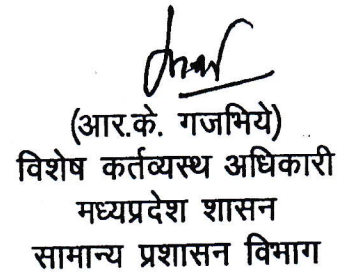 (आर.के. गजभिये)
विशेष कर्तव्यस्थ अधिकारी
मध्यप्रदेश शासन
सामान्य प्रशासन विभाग